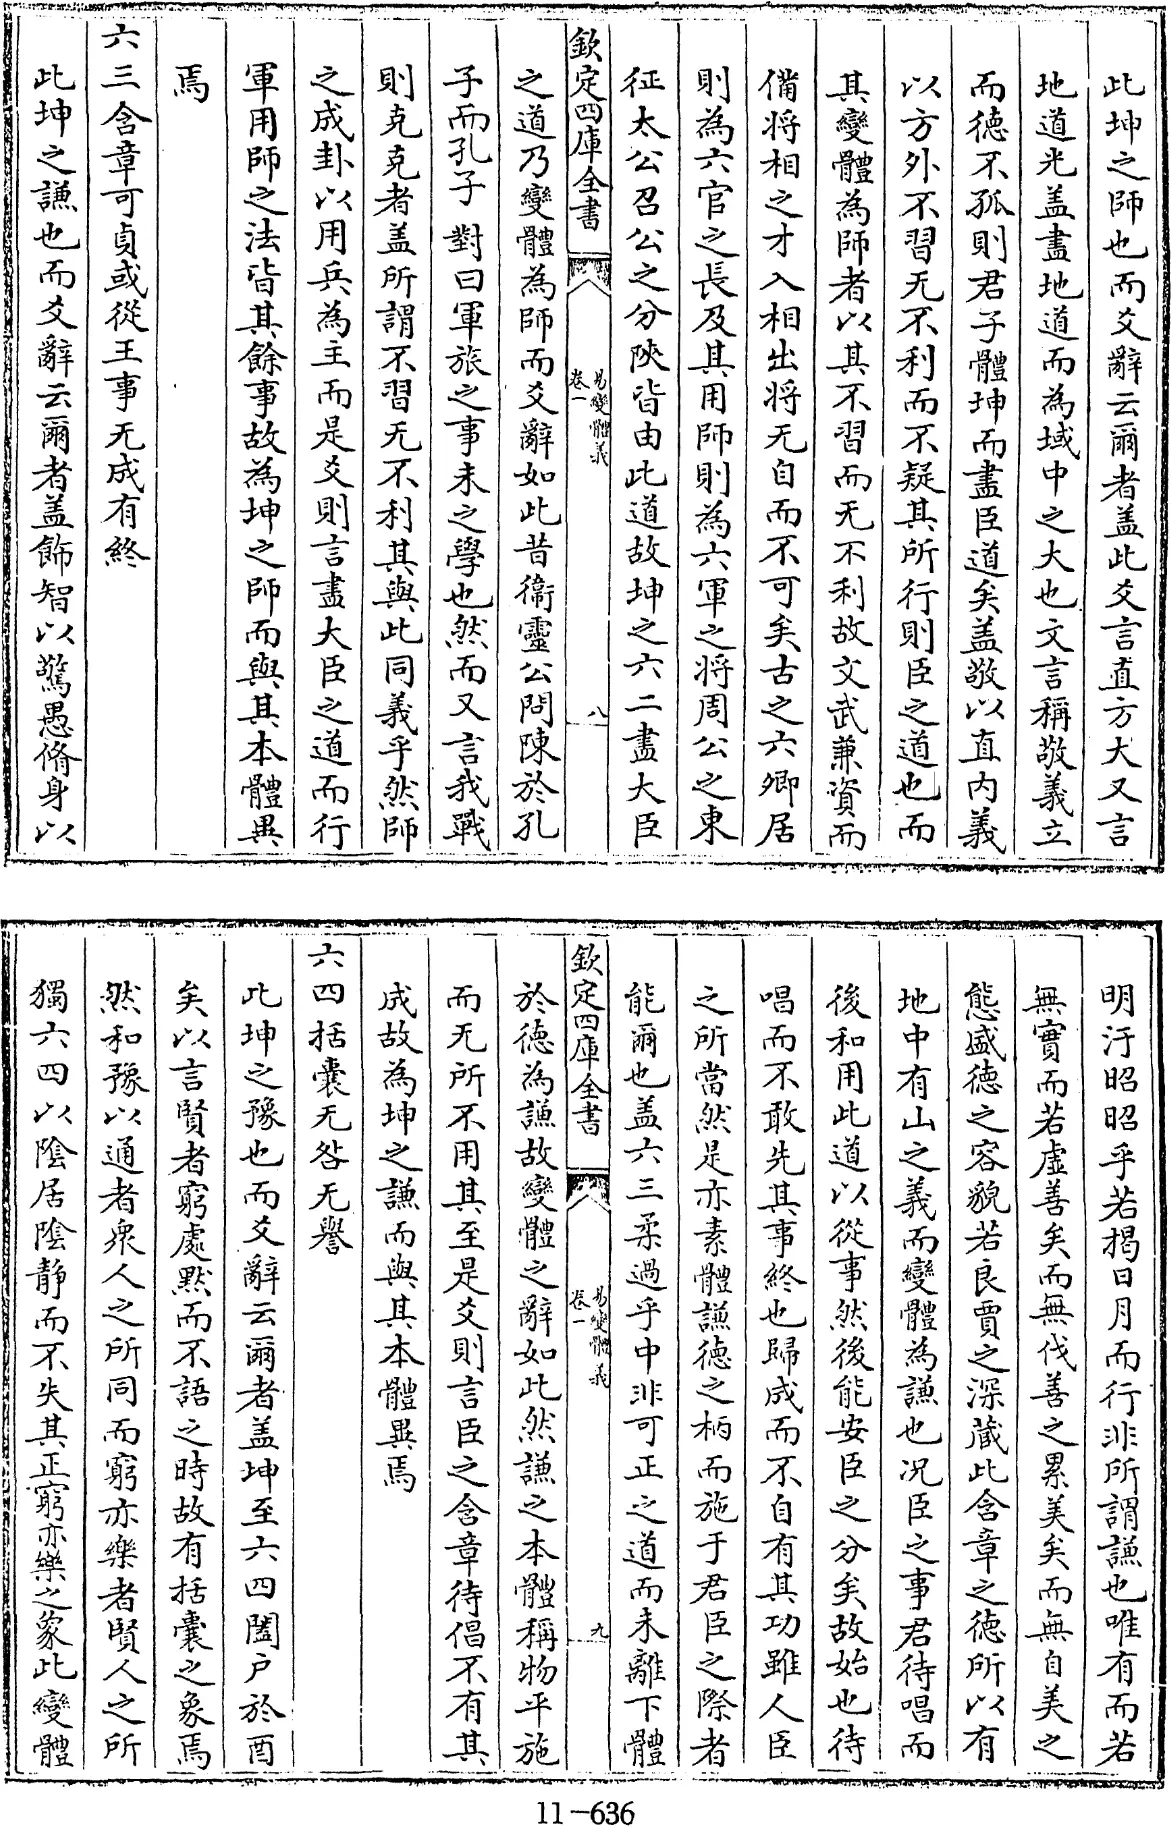 此坤之師也而爻辭云爾者盖此爻言直方大又言
地道光盖盡地道而為域中之大也文言稱敬義立
而徳不孤則君子體坤而盡臣道矣盖敬以直内義
以方外不習无不利而不疑其所行則臣之道也而
其變體為師者以其不習而无不利故文武兼資而
備將相之才入相出將无自而不可矣古之六卿居
則為六官之長及其用師則為六軍之將周公之東
征太公召公之分陜皆由此道故坤之六二盡大臣
欽定四庫全書
易變體義
卷一
八
之道乃變體為師而爻辭如此昔衞靈公問陳於孔
子而孔子對曰軍旅之事未之學也然而又言我戰
則克克者盖所謂不習无不利其與此同義乎然師
之成卦以用兵為主而是爻則言盡大臣之道而行
軍用師之法皆其餘事故為坤之師而與其本體異
焉
六三含章可貞或從王事无成有終
此坤之謙也而爻辭云爾者盖飾智以驚愚脩身以
明汙昭昭乎若揭日月而行非所謂謙也唯有而若
無實而若虚善矣而無伐善之累美矣而無自美之
態盛徳之容貌若良賈之深藏此含章之徳所以有
地中有山之義而變體為謙也况臣之事君待唱而
後和用此道以從事然後能安臣之分矣故始也待
唱而不敢先其事終也歸成而不自有其功雖人臣
之所當然是亦素體謙徳之柄而施于君臣之際者
能爾也盖六三柔過乎中非可正之道而未離下體
欽定四庫全書
易變體義
卷一
九
於徳為謙故變體之辭如此然謙之本體稱物平施
而无所不用其至是爻則言臣之含章待倡不有其
成故為坤之謙而與其本體異焉
六四括囊无咎无譽
此坤之豫也而爻辭云爾者盖坤至六四闔户於酉
矣以言賢者窮處黙而不語之時故有括囊之象焉
然和豫以通者衆人之所同而窮亦樂者賢人之所
獨六四以陰居陰静而不失其正窮亦樂之象此變體
11-636